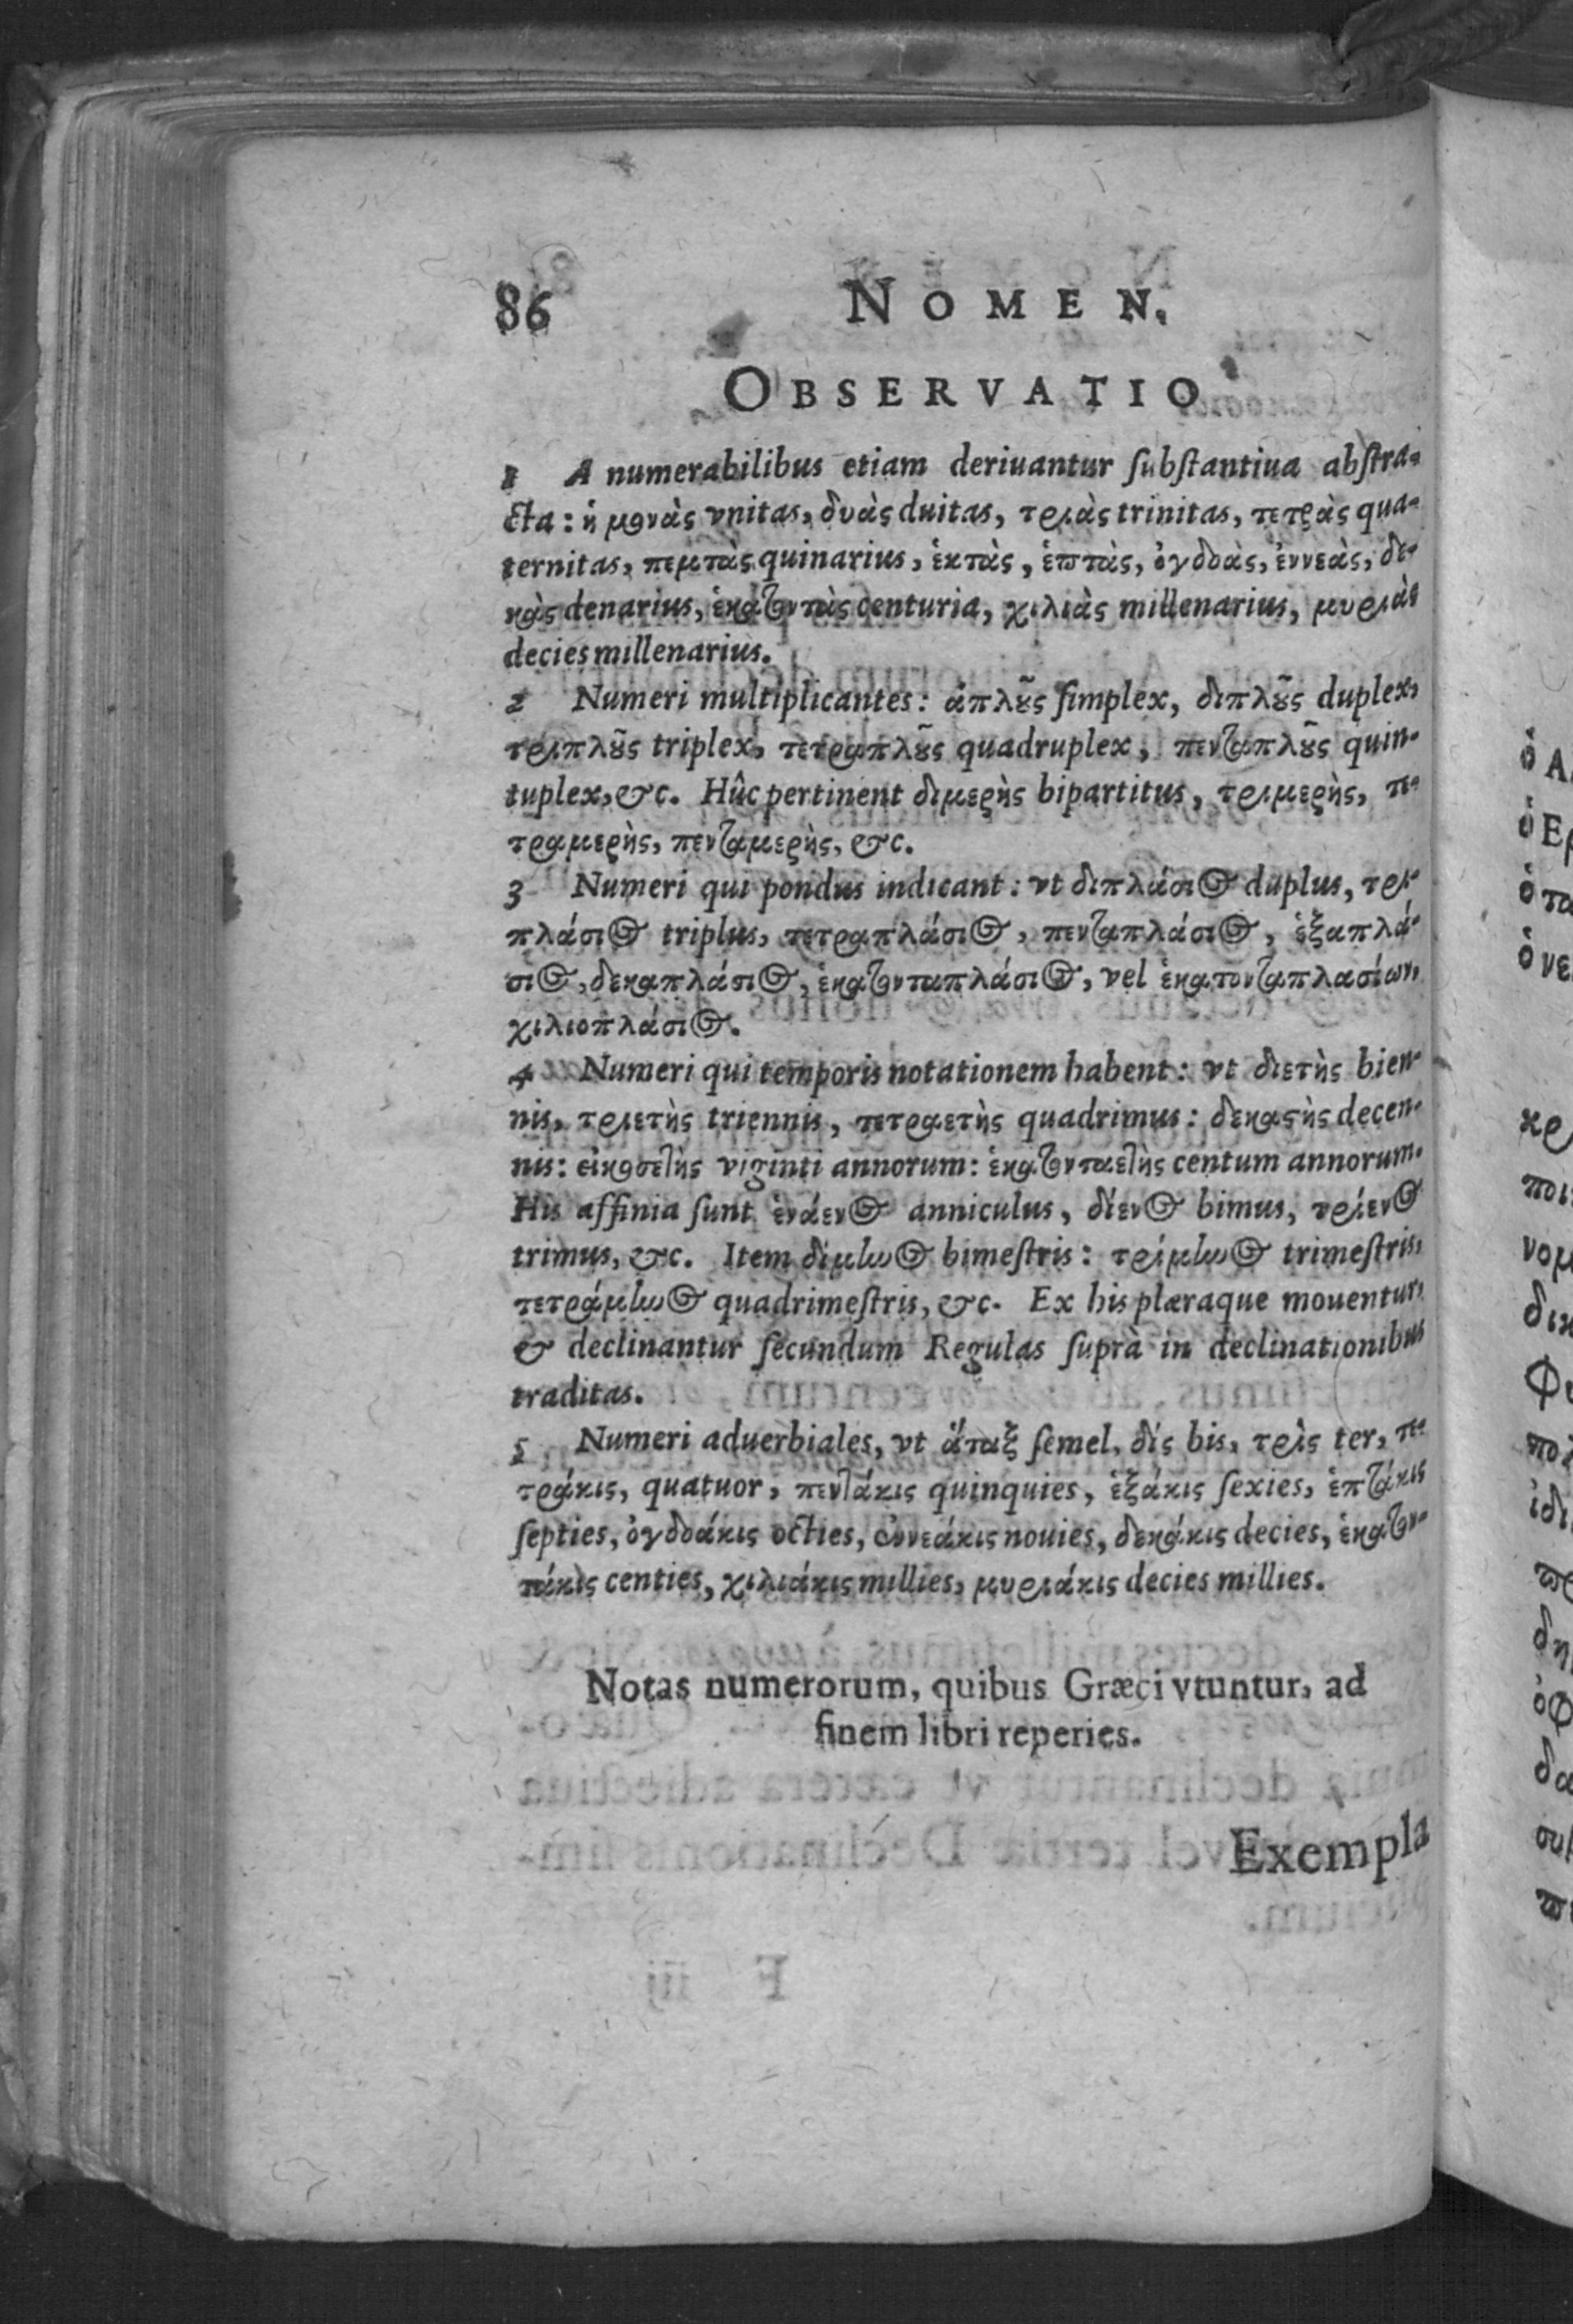 86 NOMEN.
OBSERVATIO
1 A numerabilibus etiam deriuantur ſubſtantiua abſtra-
cta: ἡ μονὰς vnitas, δυὰς duitas, τριὰς trinitas, τετρὰς qua-
ternitas, πεμτὰς quinarius, ἑκτὰς, ἑπτὰς, ὀγδοὰς, ἐννεὰς, δε-
κὰς denarius, ἑκατοντὰς centuria, χιλιὰς millenarius, μυριὰς
decies millenarius.
2 Numeri multiplicantes: ἁπλοῦς ſimplex, διπλοῦς duplex,
τριπλοῦς triplex, τετραπλοῦς quadruplex, πενταπλοῦς quin-
tuplex, &c. Hûc pertinent διμερὴς bipartitus, τριμερὴς, τε-
τραμερὴς, πενταμερὴς, &c.
3 Numeri qui pondus indicant: vt διπλάσιος duplus, τρι-
πλάσιος triplus, τετραπλάσιος, πενταπλάσιος, ἑξαπλά-
σιος, δεκαπλάσιος, ἑκατονταπλάσιος, vel ἑκατονταπλασίων,
χιλιοπλάσιος.
4 Numeri qui temporis notationem habent: vt διετὴς bien-
nis, τριετὴς triennis, τετραετὴς quadrimus: δεκαετὴς decen-
nis: εἰκοσετὴς viginti annorum: ἑκατονταετὴς centum annorum.
His affinia ſunt ἐνάενος anniculus, δίενος bimus, τρίενος
trimus, &c. Item δίμηνος bimeſtris: τρίμηνος trimeſtris,
τετράμηνος quadrimeſtris, &c. Ex his plæraque mouentur,
& declinantur ſecundum Regulas ſuprà in declinationibus
traditas.
5 Numeri aduerbiales, vt ἅπαξ ſemel, δίς bis, τρὶς ter, τε-
τράκις, quatuor, πεντάκις quinquies, ἑξάκις ſexies, ἑπτάκις
ſepties, ὀγδοάκις octies, ἐννεάκις nouies, δεκάκις decies, ἑκατον-
τάκις centies, χιλιάκις millies, μυριάκις decies millies.
Notas numerorum, quibus Græci vtuntur, ad
finem libri reperies.
Exempla